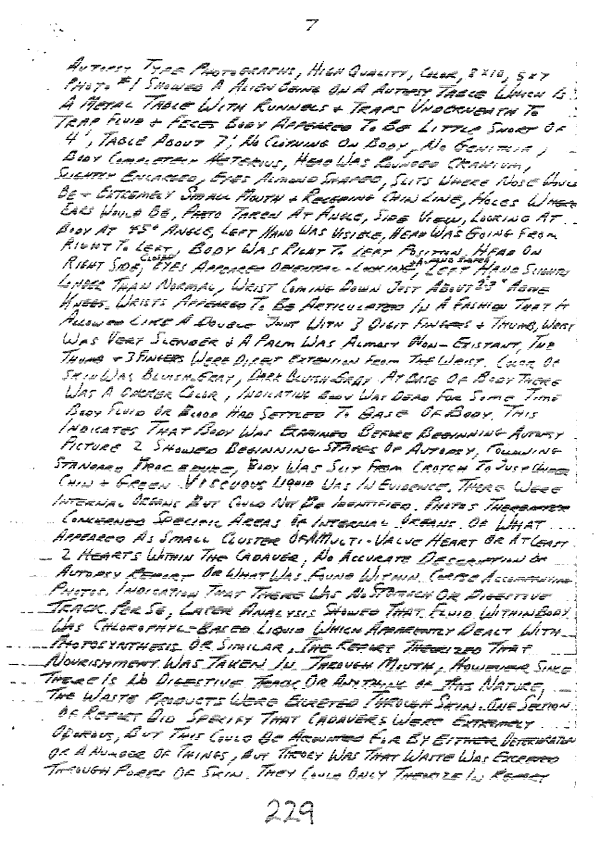 7
AUTOPSY TYPE PHOTOGRAPHS, HIGH QUALITY, COLOR, 8X10, 5X7
PHOTO #1 SHOWED A ALIEN BEING ON A AUTOPSY TABLE WHICH IS
A METAL TABLE WITH RUNNELS & TRAPS UNDERNEATH TO
TRAP FLUID & FECES BODY APPEARED TO BE LITTLE SHORT OF
4', TABLE ABOUT 7', NO CLOTHING ON BODY, NO GENITALIA,
BODY COMPLETELY HETEROUS, HEAD WAS ROUNDED CRANIUM,
SLIGHTLY ENLARGED, EYES ALMOND SHAPED, SLITS WHERE NOSE WOULD
BE - EXTREMELY SMALL MOUTH & RECEDING CHIN LINE, HOLES WHERE
EARS WOULD BE, PHOTO TAKEN AT ANGLE, SIDE VIEW, LOOKING AT
BODY AT 45° ANGLE, LEFT HAND WAS VISIBLE, HEAD WAS GOING FROM
RIGHT TO LEFT, BODY WAS RIGHT TO LEFT POSITION, HEAD ON
RIGHT SIDE, CLOSED EYES APPEARED ORIENTAL-LOOKING & ALMOND SHAPED, LEFT HAND SLIGHTLY
LONGER THAN NORMAL, WRIST COMING DOWN JUST ABOUT 2-3" ABOVE
KNEES. WRISTS APPEARED TO BE ARTICULATED IN A FASHION THAT IT
ALLOWED LIKE A DOUBLE JOINT WITH 3 DIGIT FINGERS & THUMB, WRIST
WAS VERY SLENDER & A PALM WAS ALMOST NON-EXISTANT, THE
THUMB & 3 FINGERS WERE DIRECT EXTENTION FROM THE WRIST. COLOR OF
SKIN WAS BLUISH-GRAY, DARK BLUISH-GRAY. AT BASE OF BODY THERE
WAS A DARKER COLOR, INDICATING BODY WAS DEAD FOR SOME TIME
BODY FLUID OR BLOOD HAD SETTLED TO BASE OF BODY. THIS
INDICATES THAT BODY WAS EXAMINED BEFORE BEGINNING AUTOPSY
PICTURE 2 SHOWED BEGINNING STAGES OF AUTOPSY, FOLLOWING
STANDARD PROCEDURE, BODY WAS SLIT FROM CROTCH TO JUST UNDER
CHIN & GREEN VISCUOUS LIQUID WAS IN EVIDENCE. THERE WERE
INTERNAL ORGANS BUT COULD NOT BE IDENTIFIED. PHOTOS THEREAFTER
CONCERNED SPECIFIC AREAS OF INTERNAL ORGANS. OF WHAT
APPEARED AS SMALL CLUSTER OF MULTI-VALVE HEART OR AT LEAST
2 HEARTS WITHIN THE CADAVER, NO ACCURATE DESCRIPTION OF
AUTOPSY REPORT OR WHAT WAS FOUND WITHIN CORPSE ACCOMPANYING
PHOTOS. INDICATION THAT THERE WAS NO STOMACH OR DIGESTIVE
TRACK PER SE, LATER ANALYSIS SHOWED THAT FLUID WITHIN BODY
WAS CHLOROPHYL-BASED LIQUID WHICH APPARENTLY DEALT WITH
PHOTOSYNTHESIS OR SIMILAR, THE REPORT THEORIZED THAT
NOURISHMENT WAS TAKEN IN THROUGH MOUTH, HOWEVER SINCE
THERE IS NO DIGESTIVE TRACK OR ANYTHING OF THIS NATURE,
THE WASTE PRODUCTS WERE EXCRETED THROUGH SKIN. ONE SECTION
OF REPORT DID SPECIFY THAT CADAVERS WERE EXTREMELY
ODOROUS, BUT THIS COULD BE ACCOUNTED FOR BY EITHER DETERIORATION
OR A NUMBER OF THINGS, BUT THEORY WAS THAT WASTE WAS EXCRETED
THROUGH PORES OF SKIN. THEY COULD ONLY THEORIZE IN REPORT
229